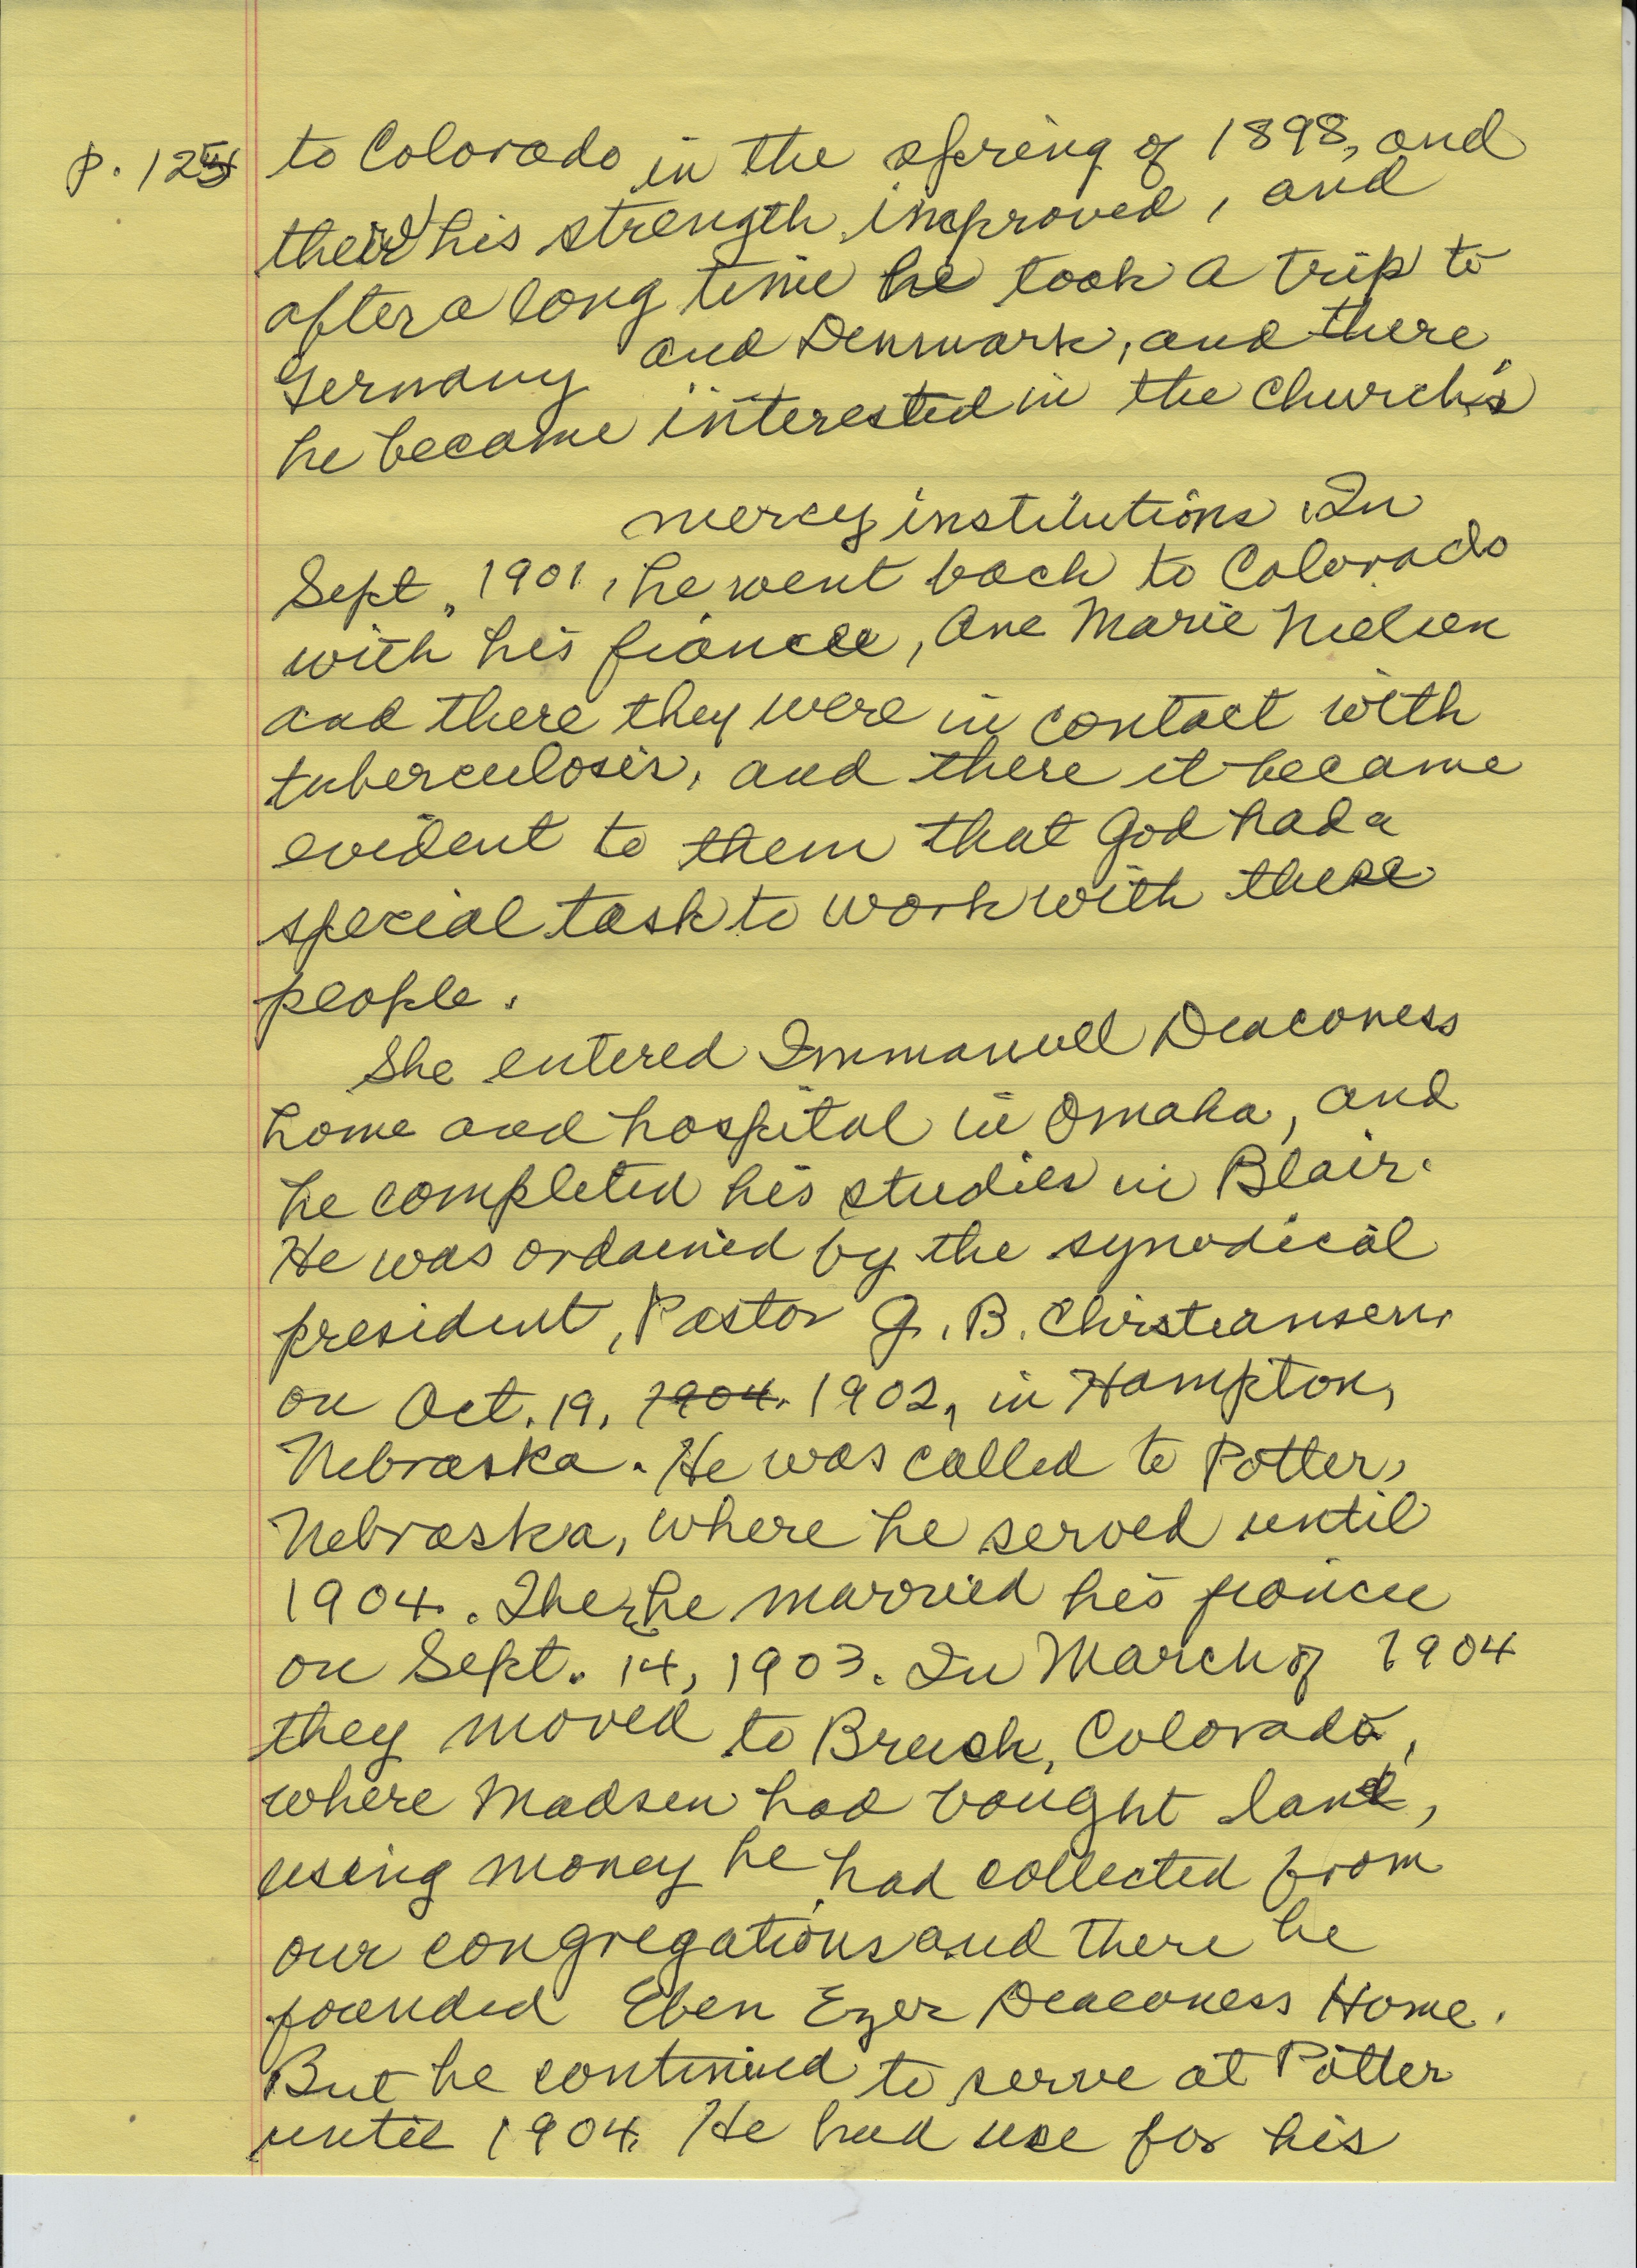 p. 125 to Colorado in the spring of 1898, and
there his strength improved, and
after a long time he took a trip to
Germany and Denmark, and there
he became interested in the church's
mercy institutions. In
Sept., 1901, he went back to Colorado
with his fiancee, Ane Marie Nielsen
and there they were in contact with
tuberculosis, and there it became
evident to them that God had a
special task to work with these
people.
She entered Immanuel Deaconess
home and hospital in Omaha, and
he completed his studies in Blair.
He was ordained by the synodical
president, Pastor G. B. Christiansen,
on Oct. 19, 1904. 1902, in Hampton,
Nebraska. He was called to Potter,
Nebraska, where he served until
1904. There he married his fiancee
on Sept. 14, 1903. In March of 1904
they moved to Brush, Colorado,
where Madsen had bought land,
using money he had collected from
our congregations and there he
founded Eben Ezer Deaconess Home.
But he continued to serve at Potter
until 1904. He had use for his